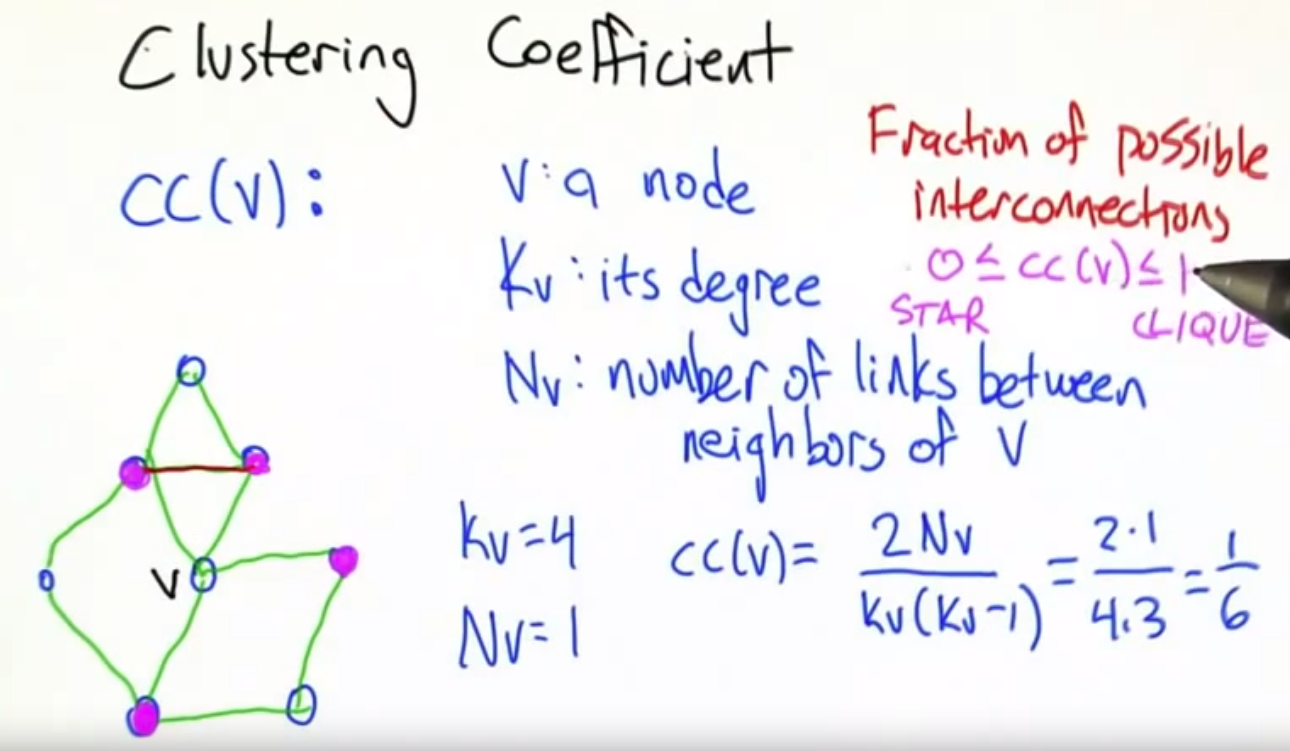 Clustering Coefficient
CC(v):
v: a node
Kv: its degree
Nv: number of links between
neighbors of V
Fraction of possible
interconnections
0 ≤ CC(v) ≤ 1
STAR
CLIQUE
V
Kv=4
Nv=1
CC(v)= 2Nv / Kv(Kv-1) = 2·1 / 4.3 = 1/6